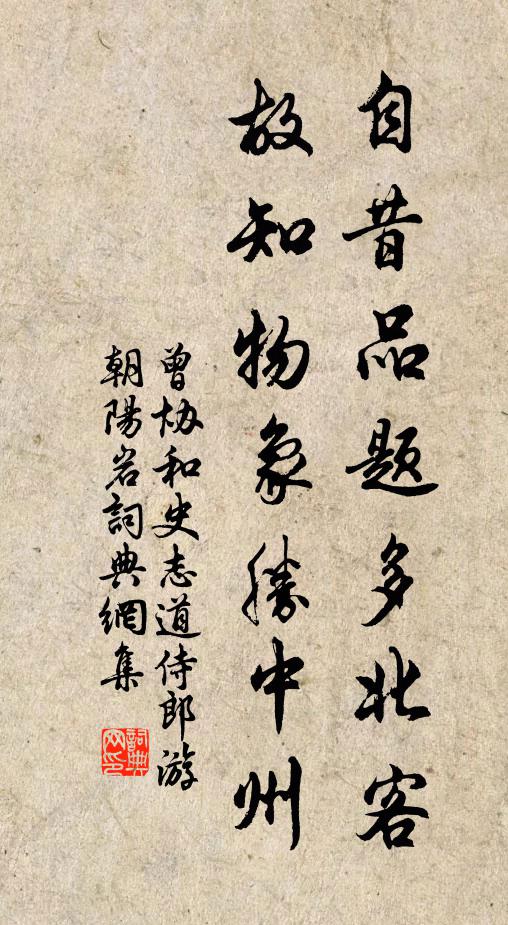 自昔品题多北客
故知物象勝中州
曾协和史志道侍郎游
朝陽岩詞典網集
詞典
网印